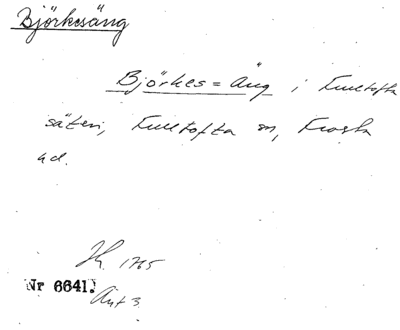 Björkesäng
Björkes=Äng i Fulltofta
säteri, Fulltofta sn, Frosta
hd.
Jh. 1765
Nr 6641.
Akt 3